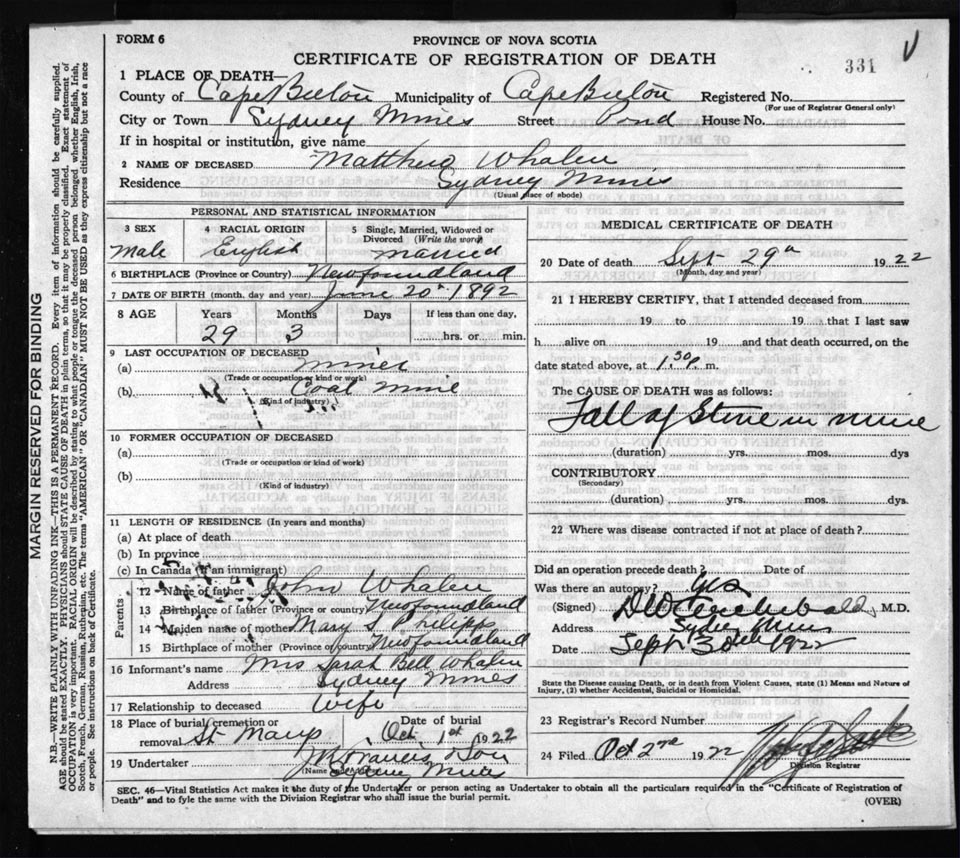 FORM 6
PROVINCE OF NOVA SCOTIA
CERTIFICATE OF REGISTRATION OF DEATH
331
1 PLACE OF DEATH—
County of Cape Breton Municipality of Cape Breton Registered No.
(For use of Registrar General only)
City or Town Sydney Mines Street Pond House No.
If in hospital or institution, give name
2 NAME OF DECEASED Matthew Whalen
Residence Sydney Mines
(Usual place of abode)
PERSONAL AND STATISTICAL INFORMATION
3 SEX 4 RACIAL ORIGIN 5 Single, Married, Widowed or Divorced (Write the word)
Male English married
6 BIRTHPLACE (Province or Country) Newfoundland
7 DATE OF BIRTH (month, day and year) June 20th 1892
8 AGE Years Months Days If less than one day,
29 3 hrs. or min.
9 LAST OCCUPATION OF DECEASED
(a) miner
(Trade or occupation or kind or work)
(b) Coal mine
(Kind of industry)
10 FORMER OCCUPATION OF DECEASED
(a)
(Trade or occupation or kind of work)
(b)
(Kind of industry)
11 LENGTH OF RESIDENCE (In years and months)
(a) At place of death
(b) In province
(c) In Canada (if an immigrant)
Parents
12 Name of father John Whalen
13 Birthplace of father (Province or country) Newfoundland
14 Maiden name of mother Mary S Philipp
15 Birthplace of mother (Province or country) Newfoundland
16 Informant's name Mrs Sarah Bell Whalen
Address Sydney Mines
17 Relationship to deceased Wife
18 Place of burial, cremation or removal St Marys Date of burial Oct 1st 1922
19 Undertaker Son
(Name
Sydney Mines
MEDICAL CERTIFICATE OF DEATH
20 Date of death Sept 29th 1922
(Month, day and year)
21 I HEREBY CERTIFY, that I attended deceased from
19 to 19 that I last saw
h alive on 19 and that death occurred, on the
date stated above, at 1.30 p. m.
The CAUSE OF DEATH was as follows:
Fall of Stone in mine
(duration) yrs. mos. dys
CONTRIBUTORY
(Secondary)
(duration) yrs. mos. dys.
22 Where was disease contracted if not at place of death?
Did an operation precede death? Date of
Was there an autopsy? yes
(Signed) Archibald, M.D.
Address Sydney Mines
Date Sept 30th 1922
State the Disease causing Death, or in death from Violent Causes, state (1) Means and Nature of
Injury, (2) whether Accidental, Suicidal or Homicidal.
23 Registrar's Record Number
24 Filed Oct 2nd 1922
Division Registrar
SEC. 46—Vital Statistics Act makes it the duty of the Undertaker or person acting as Undertaker to obtain all the particulars required in the "Certificate of Registration of
Death" and to fyle the same with the Division Registrar who shall issue the burial permit.
(OVER)
MARGIN RESERVED FOR BINDING
N.B.—WRITE PLAINLY WITH UNFADING INK—THIS IS A PERMANENT RECORD. Every item of information should be carefully supplied.
AGE should be stated EXACTLY. PHYSICIANS should STATE CAUSE OF DEATH in plain terms, so that it may be properly classified. Exact statement of
OCCUPATION is very important. RACIAL ORIGIN will be described by stating to what people or tongue the deceased person belonged whether English, Irish,
Scotch, French, German, Russian, Ruthenian, etc. The terms "AMERICAN" OR "CANADIAN" MUST NOT BE USED as they express citizenship but not a race
or people. See instructions on back of Certificate.